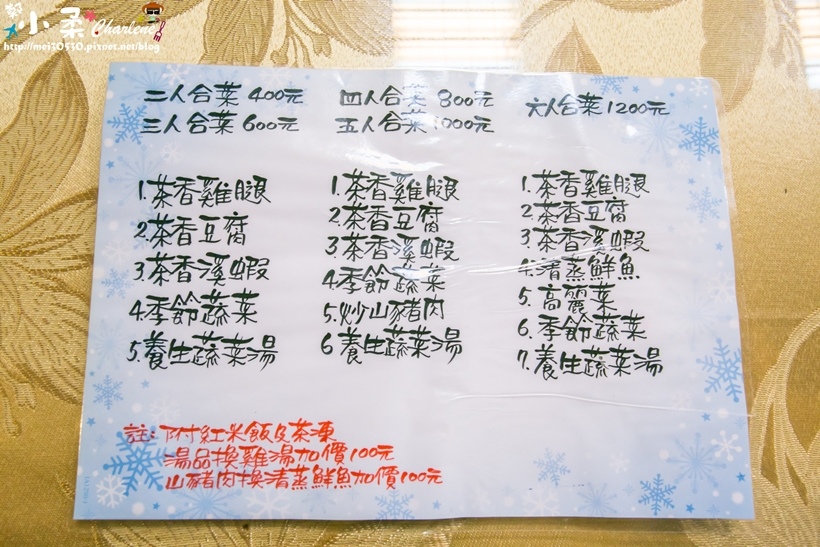 小柔 Charlene
http://mei30530.pixnet.net/blog
二人合菜 400元
三人合菜 600元
1.茶香雞腿
2.茶香豆腐
3.茶香溪蝦
4.季節蔬菜
5.養生蔬菜湯
四人合菜 800元
五人合菜 1000元
1.茶香雞腿
2.茶香豆腐
3.茶香溪蝦
4.季節蔬菜
5.炒山豬肉
6 養生蔬菜湯
六人合菜 1200元
1.茶香雞腿
2.茶香豆腐
3.茶香溪蝦
4.清蒸鮮魚
5.高麗菜
6.季節蔬菜
7.養生蔬菜湯
註:附紅米飯及茶凍
湯品換雞湯加價100元
山豬肉換清蒸鮮魚加價100元